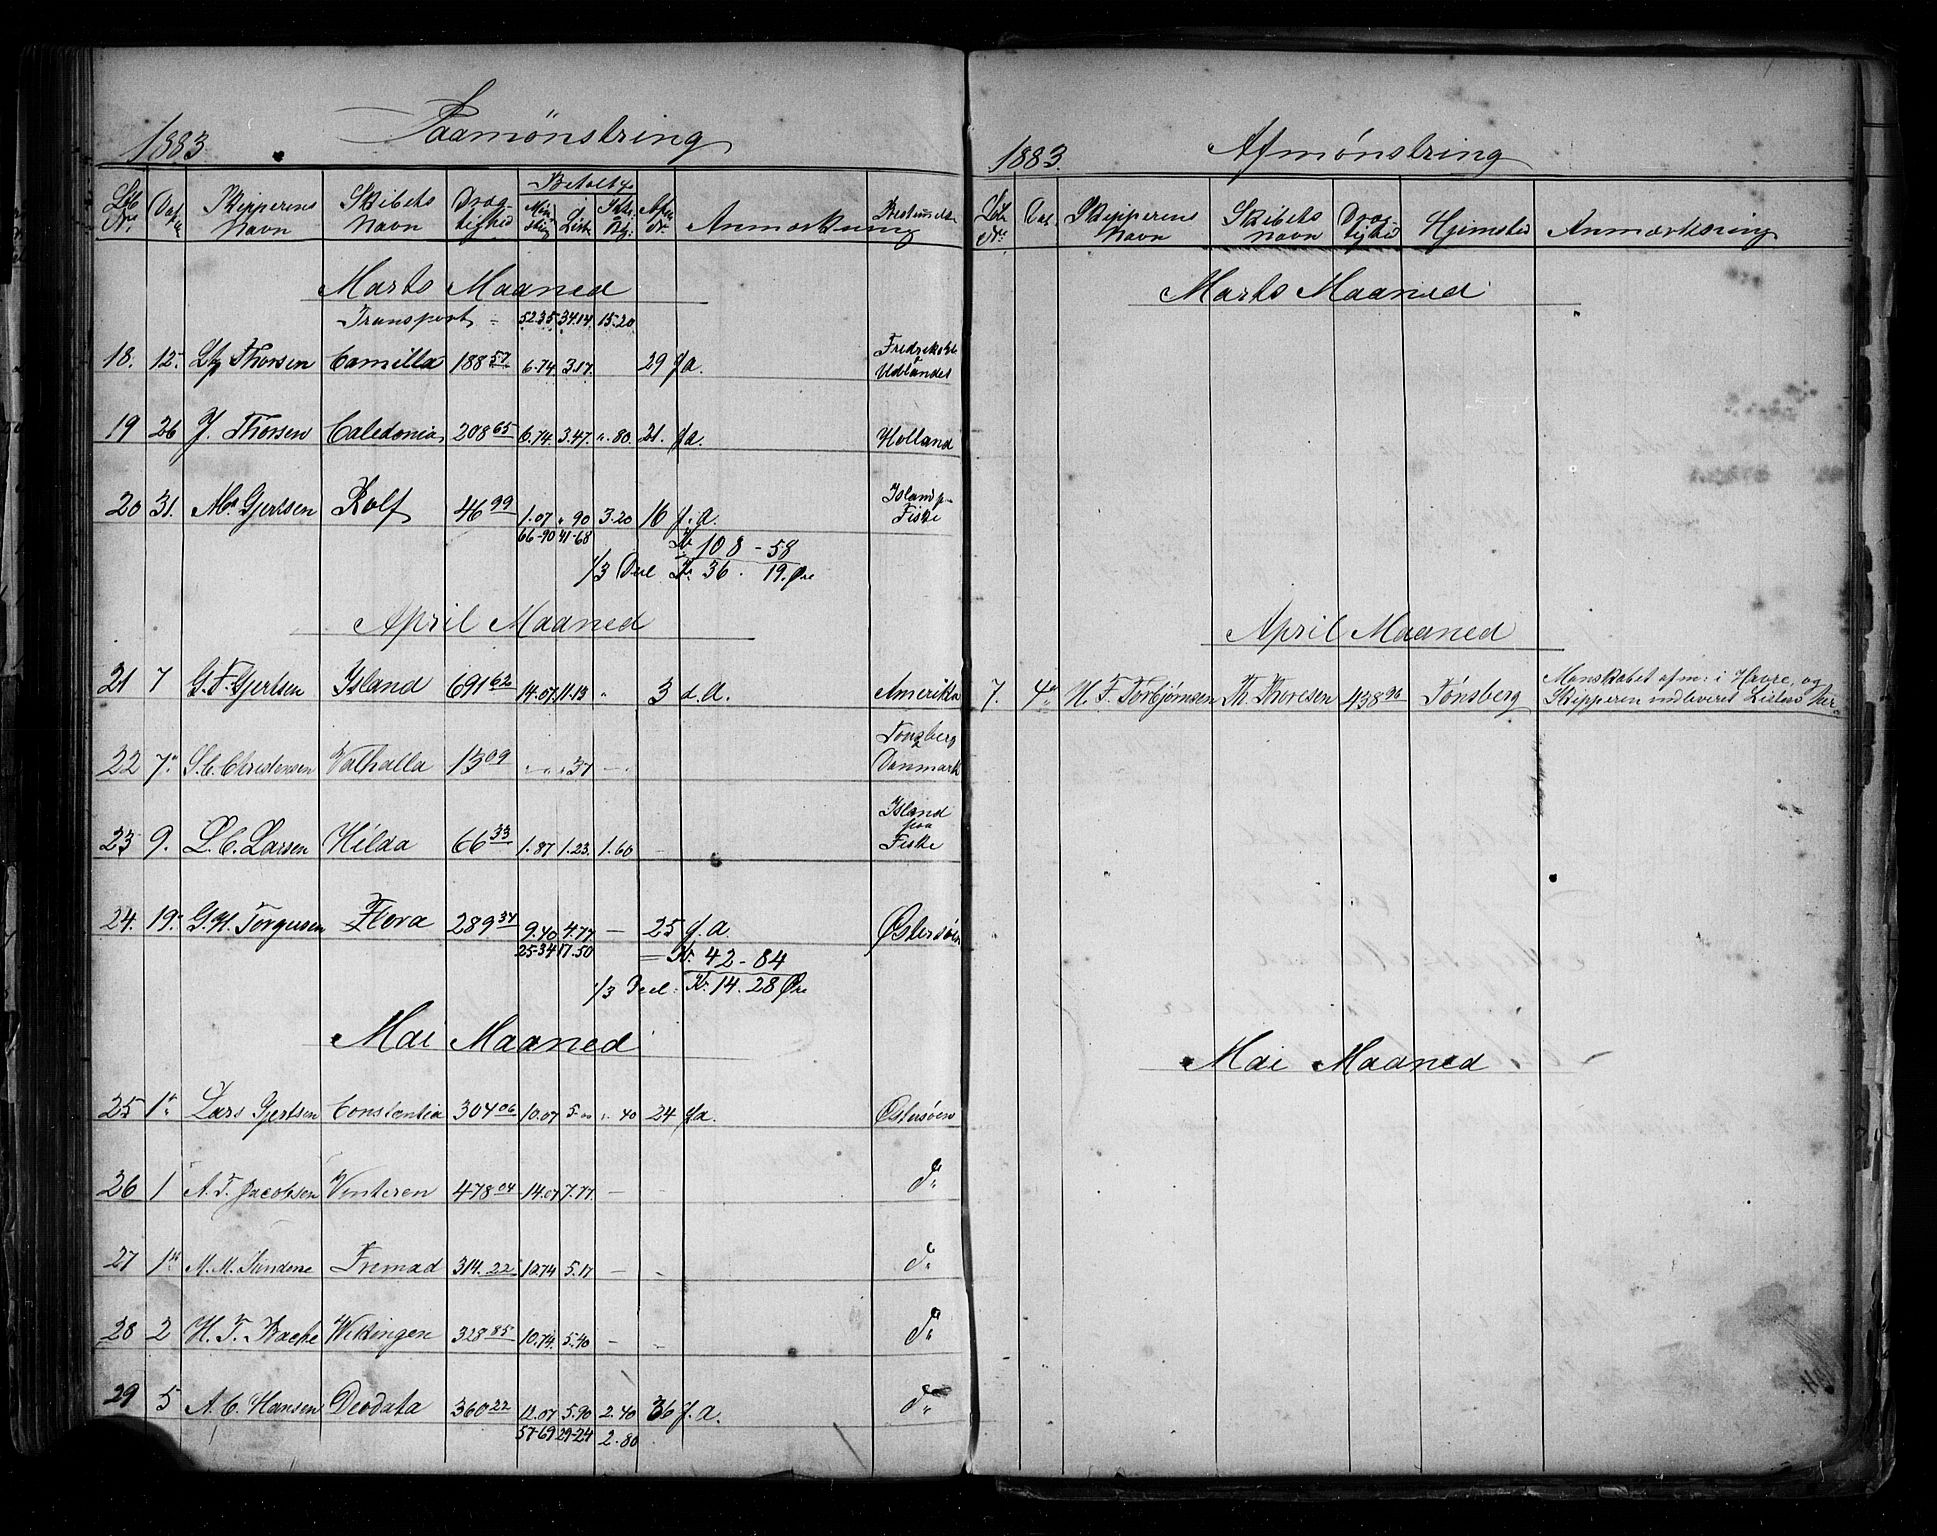 1883 Paamønstring
Lb No Dat Skipperens Navn Skibets Navn Drægtighed Betalt Møn string Liste Anmærkning Bestemmelse
Marts Maaned
Transport 52.35 34.14 15.20
18. 12. Thorsen Camilla 188 57 6.74 3.17. 29 f a. Udlandet
19 26 J. Thorsen Caledonia 208 65 6.74. 3.47. ". 80. 21. f a. Holland
20 31. Gjertsen Rolf 46 99 1.07 " 90 3.20 16 f. a. Island p. Fiske
66-90 41-68 Kr 108 - 58
1/3 Deel Kr. 36. 19. Øre
April Maaned
21 7 G. F. Gjertsen Island 691 62 14.07 11.13 " 3 d. a. Amerika
22 7" S. C. Christensen Valhalla 13 09 37 Tønsberg Danmark
23 9. L. C. Larsen Hilda 66 33 1.87 1.23. 1.60 Island paa Fiske
24. 19. G. H. Torgersen Flora 289 34 9.40 4.77 - 25 f. a Østersøen
25-34 17.50 = Kr. 42 - 84
1/3 Deel. Kr. 14. 28 Øre
Mai Maaned
25 1" Lars Gjertsen Constantia 304 06 10.07 5.00 ". 40 24 f a. Østersøen
26 1 A. F. Jacobsen Vinteren 478 04 14.07 7.77. - do
27 1" M. M. Sundene Fremad 314. 22 10.74 5.17 - - do
28 2 H. T. Bache Wikingen 328 85 10.74. 5.40 - - do
29 5 A. C. Hansen Deodata 360 22 12.07 5.90 2.40 36 f. a. do
57-69 29-24 2.80
1883. Afmønstring
Lb No Dat. Skipperens Navn Skibets Navn Drægtighed Hjemsted Anmærkning
Marts Maaned
April Maaned
7. 4" H. F. Torbjørnsen Th. Thoresen 438 93 Tønsberg Manskabet afm: i Havre, og
Skipperen indleveret Listen her.
Mai Maaned